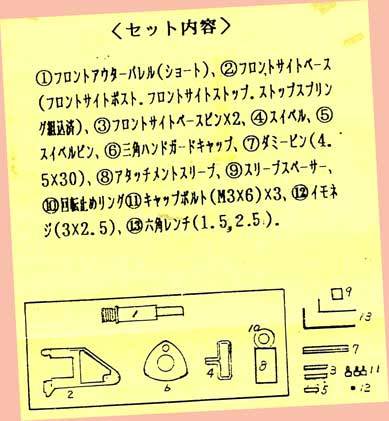 〈セット内容〉
①フロントアウターバレル(ショート)、②フロントサイトベース
(フロントサイトポスト．フロントサイトストップ．ストップスプリン
グ組込済)、③フロントサイトベースピン×2、④スイベル、⑤
スイベルピン、⑥三角ハンドガードキャップ、⑦ダミーピン(4.
5X30)、⑧アタッチメントスリーブ、⑨スリーブスペーサー、
⑩回転止めリング⑪キャップボルト(M3X6)×3、⑫イモネ
ジ(3X2.5)、⑬六角レンチ(1.5,2.5).
1
2
6
4
10
8
9
13
7
3
11
5
12